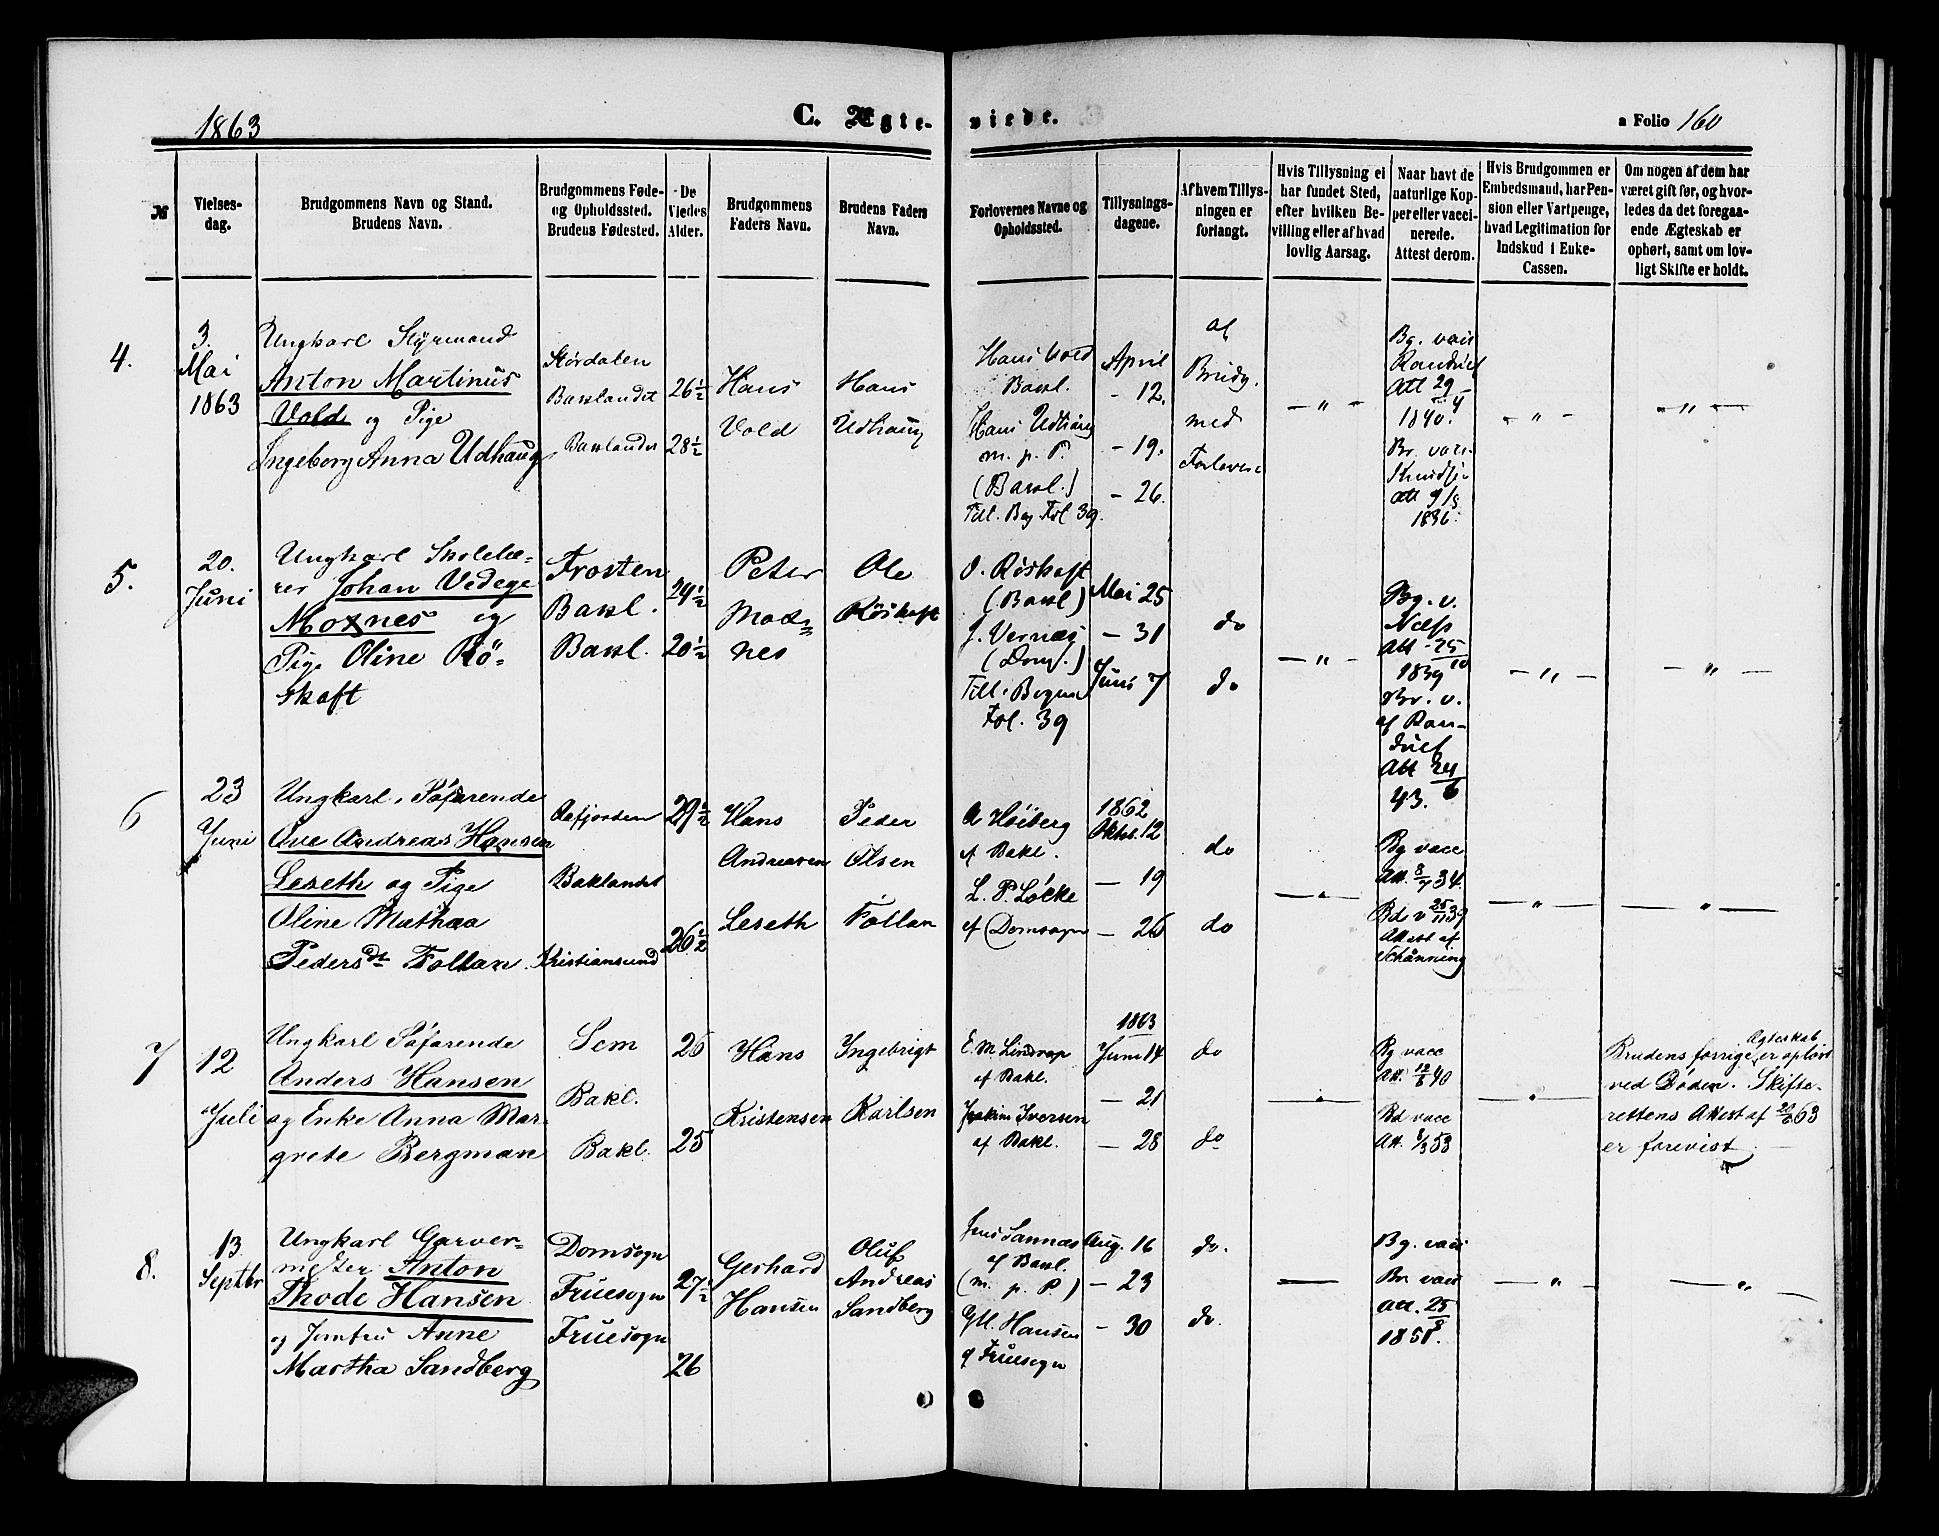 1863
C. Ægte-
viede.
a Folio 160
№
Vielses-
dag.
Brudgommens Navn og Stand.
Brudens Navn.
Brudgommens Føde-
og Opholdssted.
Brudens Fødested.
De
Viedes
Alder.
Brudgommens
Faders Navn.
Brudens Faders
Navn.
Forlovernes Navne og
Opholdssted.
Tillysnings-
dagene.
Af hvem Tillys-
ningen er
forlangt.
Hvis Tillysning ei
har fundet Sted,
efter hvilken Be-
villing eller af hvad
lovlig Aarsag.
Naar havt de
naturlige Kop-
per eller vacci-
nerede.
Attest derom.
Hvis Brudgommen er
Embedsmand, har Pen-
sion eller Vartpenge,
hvad Legitimation for
Indskud i Enke-
Cassen.
Om nogen af dem har
været gift før, og hvor-
ledes da det foregaa-
ende Ægteskab er
ophørt, samt om lov-
ligt Skifte er holdt.
4.
3.
Mai
1863
Ungkarl Styrmand
Anton Martinus
Vold og Pige
Ingeborg Anna Udhaug
Stördalen
Baklandet
Baklandet
26½
28½
Hans
Vold
Hans
Udhaug
Hans Vold
Bakl.
Hans Udhaug
m. p. P.
(Bakl.)
Till. Bog Fol 39.
April
- 12.
- 19.
- 26.
af
Brudg.
med
Forlovere
- " -
Bg. vacc
Randulf
Att 29/4
1840.
Br. vacc.
Att 9/8
1836.
- " -
- " -
5.
20.
Juni
Ungkarl Skolelæ-
rer Johan Vedege
Moxnes og
Pige Oline Rö-
skaft
Frosten
Bakl.
Bakl.
24½
20½
Peter
Mox=
nes
Ole
Röskaft
O. Röskaft
(Bakl)
J. Vernæs
(Doms.)
Till. Bogen
Fol. 39
Mai 25
- 31
Juni 7
do
do
- " -
Bg. v.
Att 25/10
1839
Br. v.
af Ran-
dulf
Att 24/6
43.
- " -
- " -
6
23
Juni
Ungkarl, Söfarende
Ove Andreas Hansen
Leseth og Pige
Oline Mathea
Pedersdt Follan
Aafjorden
Baklandet
Kristiansund
29½
26½
Hans
Andreasen
Leseth
Peder
Olsen
Follan
A Höiberg
af Bakl.
L. P. Löcke
af Domsogn
1862
Oktbr. 12
- 19
- 26
do
do
- " -
Bg vacc
Att. 8/7 34.
Bd v 25/11 39
Attest af
Schånning
- " -
- " -
7
12
Juli
Ungkarl Söfarende
Anders Hansen
og Enke Anna Mar-
grete Bergman
Sem
Bakl.
Bakl.
26
25
Hans
Kristensen
Ingebrigt
Karlsen
E. M Lindrup
af Bakl.
Joakim Iversen
af Bakl.
1863
Juni 14
- 21
- 28
do
do
- " -
Bg vacc
Att. 12/6 40
Bd vacc
Att. 8/3 53
- " -
Ægteskab
Brudens forrige er oplöst
ved Döden. Skifte-
rettens Attest af 20/6 63
er forevist
8.
13
Septbr
Ungkarl Garver-
mester Anton
Thode Hansen
og Jomfru Anne
Martha Sandberg
Domsogn
Fruesogn
Fruesogn
27½
26
Gerhard
Hansen
Oluf
Andreas
Sandberg
Jens Sannæs
af Bakl.
(m. p. P)
Hansen
af Fruesogn
Aug. 16
- 23
- 30
do.
do.
Bg. vacc
Br vacc
Att. 25/8
1851.
- " -
- " -